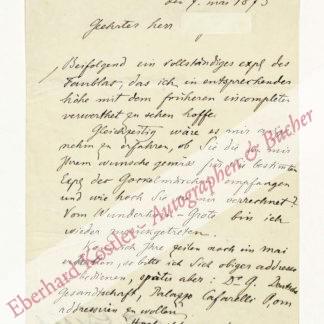 den 7. mai 1893
Geehrter Herr
Beifolgend ein vollständiges expl des
Faublas, das ich in entsprechender
höhe mit dem früheren incompleten
verwerthet zu sehen hoffe.
Gleichzeitig wäre es mir
nehm zu erfahren, ob Sie die
Ihrem wunsche gemäss für Sie bestimten
Expl der empfangen
und wie hoch Sie verrechnet?
Vom Wunderthier-Grote bin ich
wieder zurückgetreten.
Ihre zeilen noch im mai
so bitte ich sich obiger addresse
bedienen, später aber: Dr. G. Deutsche
Gesandtschaft, Palazzo Cafarelli Rom
addressiren zu wollen
Eberhard Köstler - Autographen & Bücher